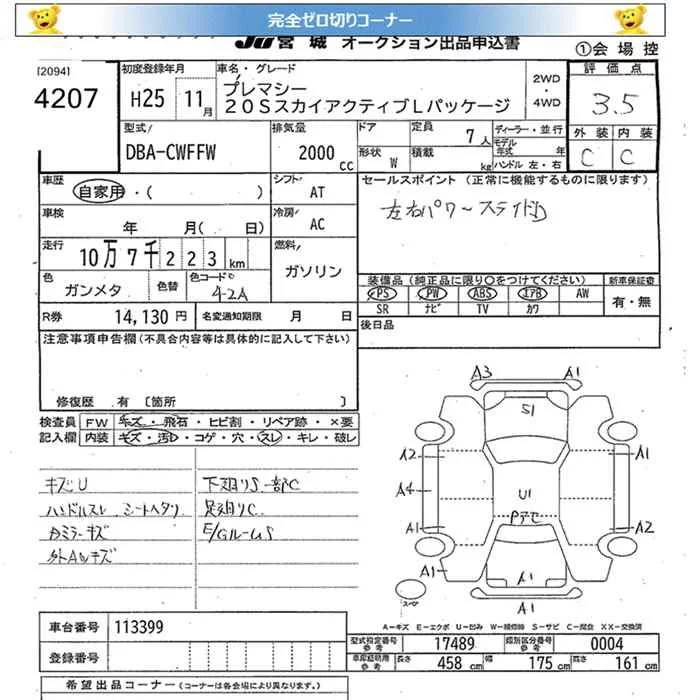 完全ゼロ切りコーナー
JU宮城 オークション出品申込書
①会場控
[2094]
4207
初度登録年月
H25 11月
車名・グレード
プレマシー
20SスカイアクティブLパッケージ
2WD
・
4WD
評価点
3.5
外装 内装
C C
型式
DBA-CWFFW
排気量
2000 cc
ドア
形状 W
定員 7人
積載 kg
ディーラー・並行
モデル年式 年
ハンドル 左・右
車歴
自家用・( )
シフト
AT
セールスポイント (正常に機能するものに限ります)
左右パワースライドD
車検
年 月( 日)
冷房
AC
走行
10万7千223km
燃料
ガソリン
色
ガンメタ
色替
色コード
42A
装備品(純正品に限り○をつけてください)
新車保証書
PS PW ABS エアB AW
SR ナビ TV カワ
有・無
R券 14,130円
名変通知期限 月 日
後日品
注意事項申告欄(不具合内容等は具体的に記入して下さい)
修復歴 有〔箇所 〕
検査員
記入欄
FW キズ・飛石・ヒビ割・リペア跡・×要
内装 キズ・汚レ・コゲ・穴・スレ・キレ・破レ
キズU
ハンドルスレ シートヘタリ
カミラーキズ
外AWキズ
下廻りS一部C
足廻りC
E/GルームS
A3 A1
S1
A2 A1
A4 U1
Pアセ
A1 A2
A1 A1
A1
スペア
A-キズ E-エクボ U-凹み W-補修跡 S-サビ C-腐食 XX-交換済
車台番号 113399
登録番号
型式指定番号 17489 類別区分番号 0004
車庫証明用参考 長さ 458cm 幅 175cm 高さ 161cm
希望出品コーナー(コーナーは各会場により異なります。)